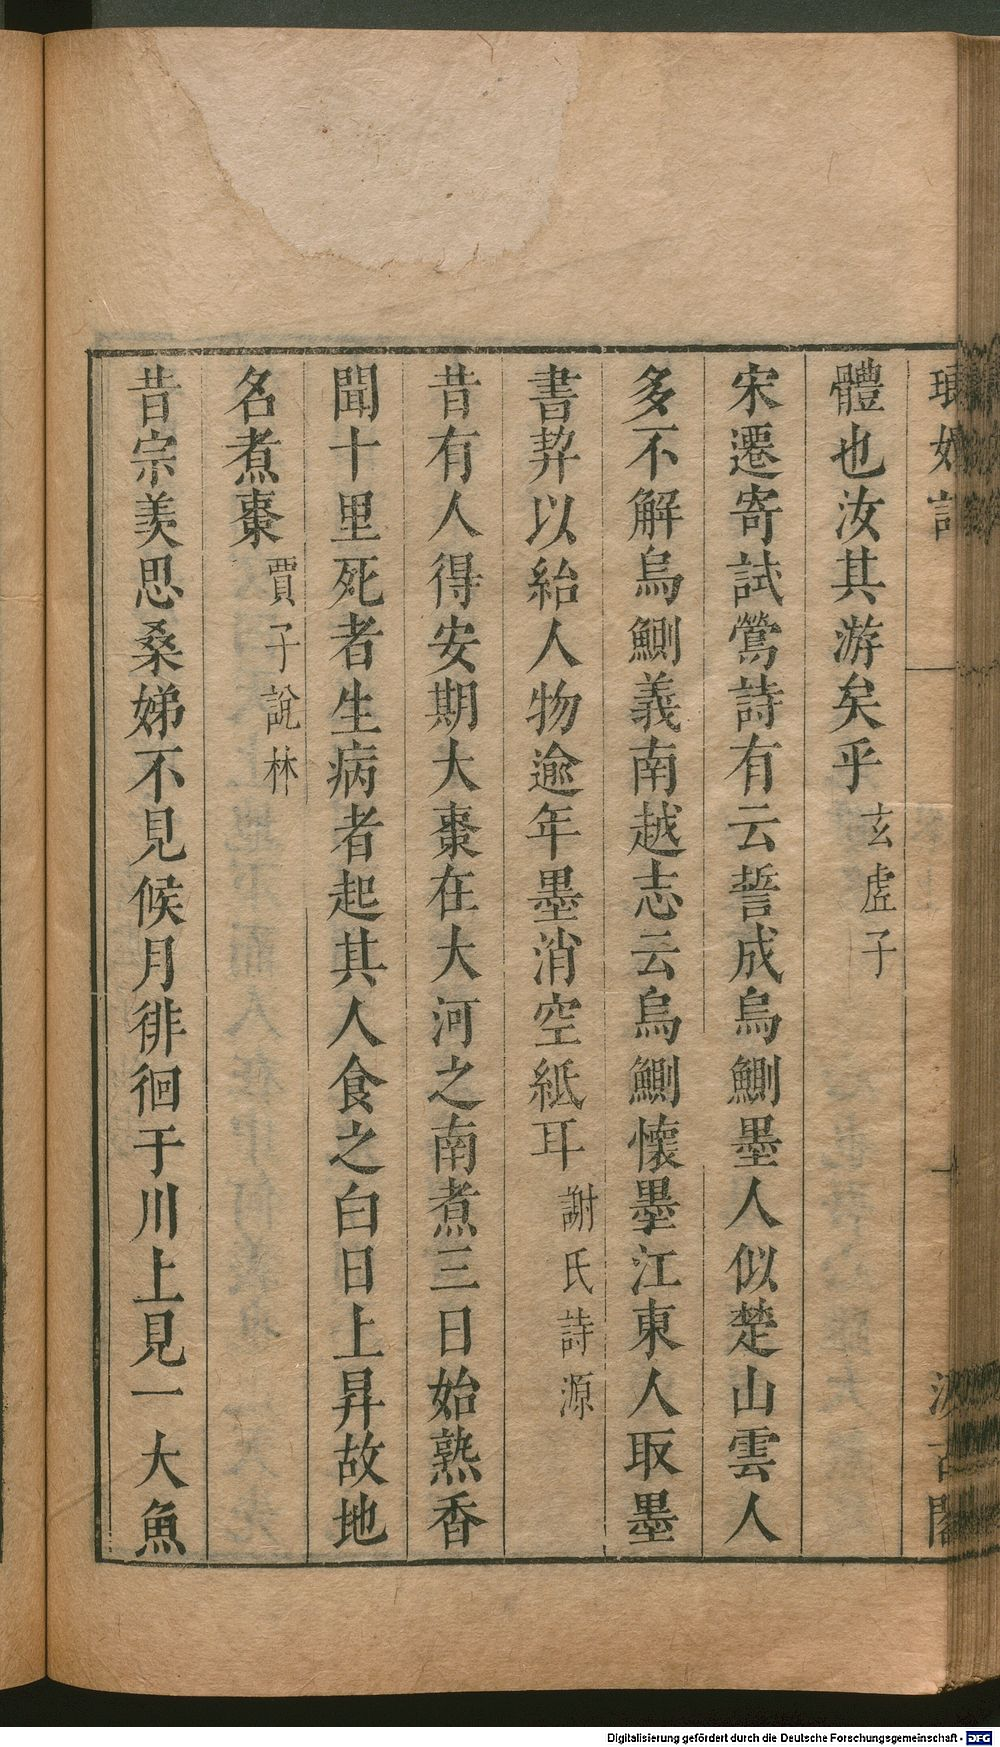 瑯嬛記 一 汲古閣
體也汝其游矣乎 玄虛子
宋遷寄試鶯詩有云誓成烏鰂墨人似楚山雲人
多不解烏鰂義南越志云烏鰂懷墨江東人取墨
書契以紿人物逾年墨消空紙耳 謝氏詩源
昔有人得安期大棗在大河之南煮三日始熟香
聞十里死者生病者起其人食之白日上昇故地
名煮棗 賈子說林
昔宗羙思桑娣不見候月徘徊于川上見一大魚
Digitalisierung gefördert durch die Deutsche Forschungsgemeinschaft - DFG